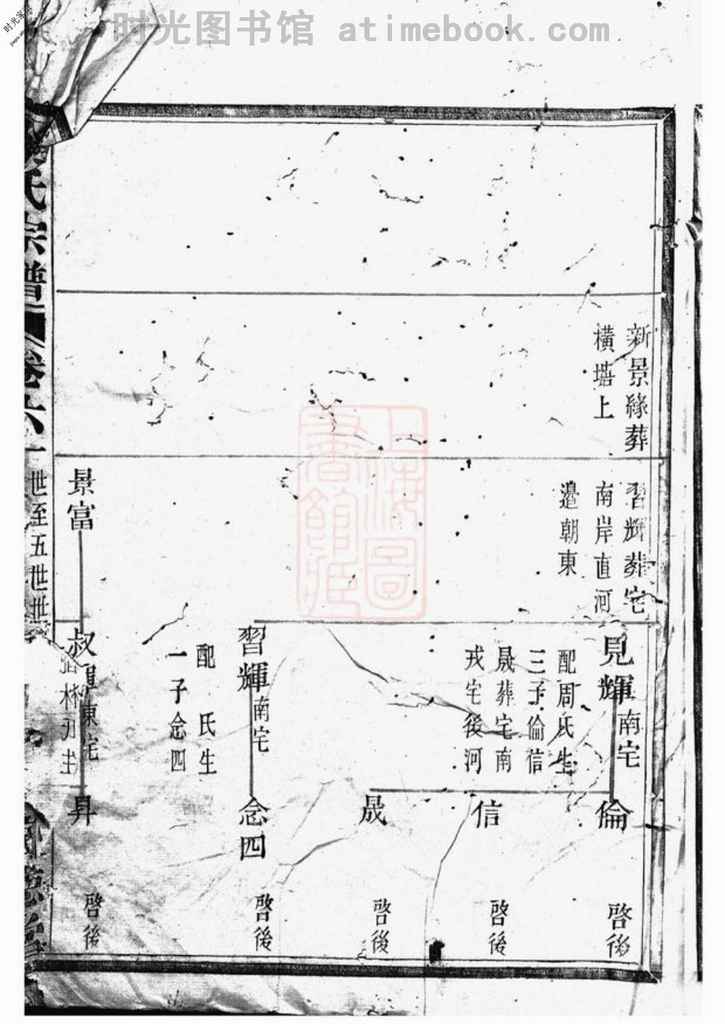 时光图书馆 atimebook.com
新景緣葬
橫塘上
習輝葬宅
南岸直河
邉朝東
見輝南宅
配周氏生
三子倫信
晟葬宅南
戎宅後河
倫
啓後
信
啓後
晟
啓後
習輝南宅
配 氏生
一子念四
念四
啓後
景富
叔
東宅
昇
啓後
氏宗譜
卷六
世至五世世系
上海圖書館藏